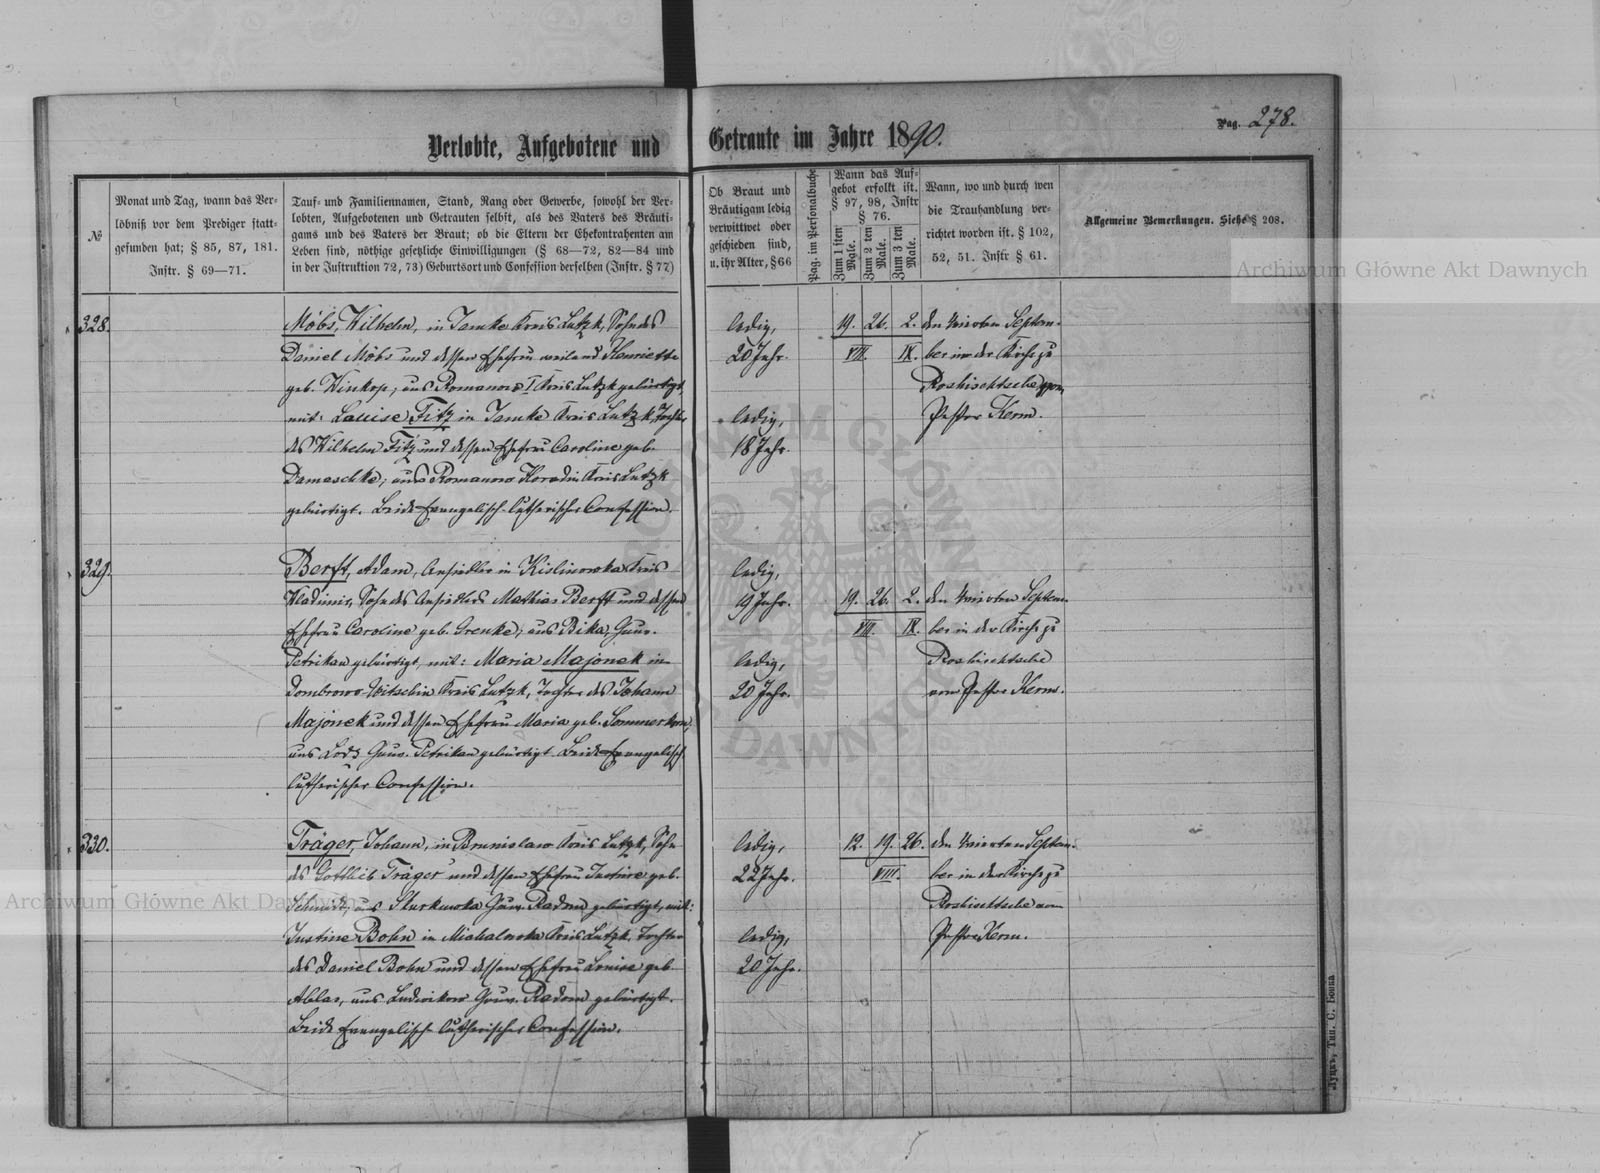 Pag. 278.
Verlobte, Aufgebotene und Getraute im Jahre 1890.
№
Monat und Tag, wann das Ver-
löbniß vor dem Prediger statt-
gefunden hat; § 85, 87, 181.
Instr. § 69—71.
Tauf- und Familiennamen, Stand, Rang oder Gewerbe, sowohl der Ver-
lobten, Aufgebotenen und Getrauten selbst, als des Vaters des Bräuti-
gams und des Vaters der Braut; ob die Eltern der Ehekontrahenten am
Leben sind, nöthige gesetzliche Einwilligungen (§ 68—72, 82—84 und
in der Justruktion 72, 73) Geburtsort und Confession derselben (Instr. § 77)
Ob Braut und
Bräutigam ledig
verwittwet oder
geschieden sind,
u. ihr Alter, §66
Pag. im Personalbuche
Wann das Auf-
gebot erfolkt ist.
§ 97, 98, Instr
§ 76.
Zum 1 sten Male.
Zum 2 ten Male.
Zum 3 ten Male.
Wann, wo und durch wen
die Trauhandlung ver-
richtet worden ist. § 102,
52, 51. Instr § 61.
Allgemeine Bemerkungen. Siehe § 208.
328.
Möbs, Wilhelm, in Jamke Kreis Lutzk, Sohn des
Daniel Möbs und dessen Ehefrau weiland Henriette
geb. Winkop, aus Romanow I Kreis Lutzk gebürtigt,
mit: Louise Fitz in Jamke Kreis Lutzk, Tochter
des Wilhelm Fitz und dessen Ehefrau Caroline geb.
Domaschke, aus Romanow Kreis Lutzk
gebürtigt. Beide Evangelisch-lutherischer Confession.
ledig,
20 Jahr.
ledig,
18 Jahr.
19. 26. 2.
VIII. IX.
den vierten Septem-
ber in der Kirche zu
Roshischtsche vom
Pastor Kerm.
329.
Berft, Adam, Ansiedler in Kislinowka Kreis
Wladimir, Sohn des Ansiedlers Mathias Berft und dessen
Ehefrau Caroline geb. Grenke, aus Bika, Gouv.
Petrikau gebürtigt, mit: Maria Majonek in
Dombrowo-Witschin Kreis Lutzk, Tochter des Johann
Majonek und dessen Ehefrau Maria geb. Sommerkorn,
aus Lodz Gouv. Petrikau gebürtigt. Beide Evangelisch-
lutherischer Confession.
ledig,
19 Jahr.
ledig,
20 Jahr.
19. 26. 2.
VIII. IX.
den vierten Septem-
ber in der Kirche zu
Roshischtsche
vom Pastor Kerm.
330.
Träger, Johann, in Brunislaw Kreis Lutzk, Sohn
des Gottlieb Träger und dessen Ehefrau Justine geb.
Schmidt, aus Gouv. Radom gebürtigt, mit:
Justine Bohn in Michalowka Kreis Lutzk, Tochter
des Daniel Bohn und dessen Ehefrau Louise geb.
aus Ludwikow Gouv. Radom gebürtigt.
Beide Evangelisch-lutherischer Confession.
ledig,
22 Jahr.
ledig,
20 Jahr.
12. 19. 26.
VIII.
den vierten Septem-
ber in der Kirche zu
Roshischtsche vom
Pastor Kerm.
Луцкъ, Тип. С. Бонка
Archiwum Główne Akt Dawnych
Archiwum Główne Akt Dawnych
ARCHIWUM GŁÓWNE AKT DAWNYCH